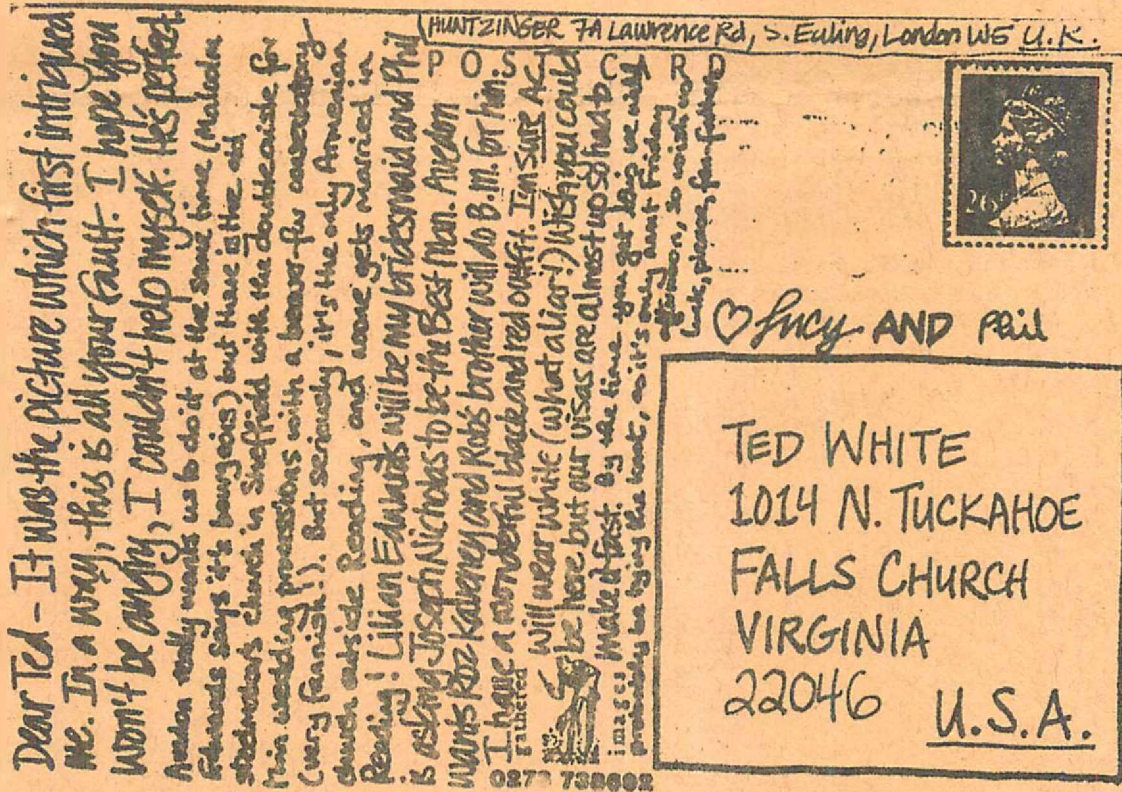 HUNTZINGER 7A Lawrence Rd, S. Ealing, London W5 U.K.
POST CARD
26
Dear Ted - It was the picture which first intrigued
me. In a way, this is all your fault. I hope you
won't be angry, I couldn't help myself. It's perfect.
Avedon really wants us to do it at the same time (Malcolm
Edwards says it's bourgeois) but there is the old
church in Sheffield with the double aisle for
twin wedding processions with a bower for
(very fannish!). But seriously, it's the only Armenian
church outside Reading, and no one gets married in
Reading! Lilian Edwards will be my bridesmaid and Phil
is asking Joseph Nicholas to be the Best Man. Avedon
wants Roz Kaveney and Rob's brother will do B.M. for him.
I have a wonderful black and red outfit. I'm sure A.C.
will wear white (what a liar!) WISH you could
be here but our visas are almost up so I had to
make it fast. By the time you get this we will
probably be tying the knot, as it's only next Friday
afternoon, so wish us
luck, please,
gathered
images
0273 738682
♡ Lucy AND Phil
TED WHITE
1014 N. TUCKAHOE
FALLS CHURCH
VIRGINIA
22046
U.S.A.